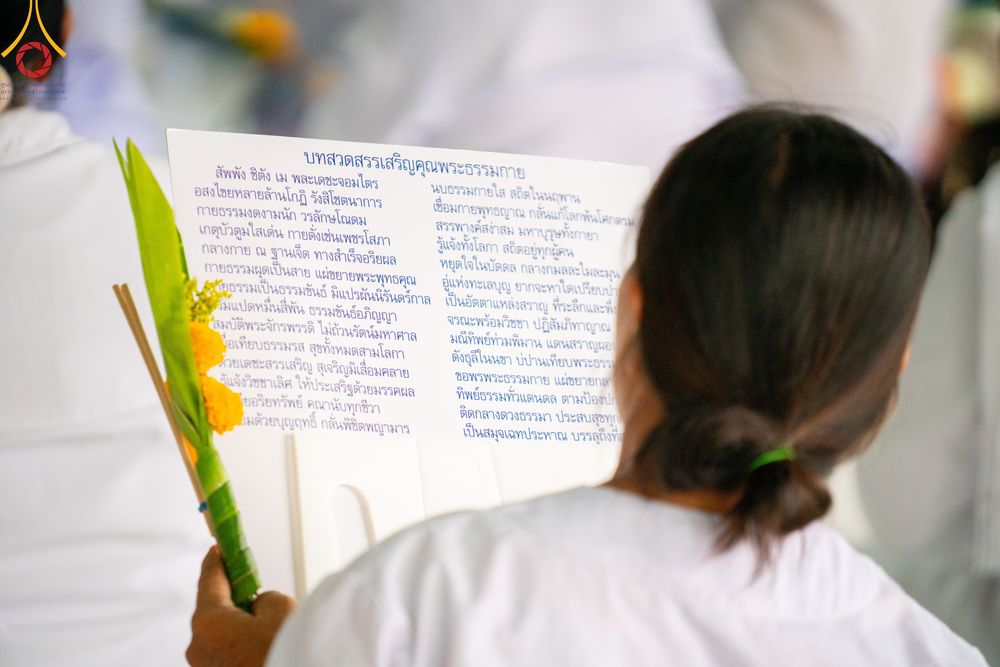 บทสวดสรรเสริญคุณพระธรรมกาย
สัพพัง ชิตัง เม พละเดชะจอมไตร
อสงไขยหลายล้านโกฏิ รังสิโชตนาการ
กายธรรมงดงามนัก วรลักษโณดม
เกตุบัวตูมใสเด่น กายดั่งเช่นเพชรโสภา
กลางกาย ณ ฐานเจ็ด ทางสำเร็จอริยผล
กายธรรมผุดเป็นสาย แผ่ขยายพระพุทธคุณ
ายธรรมเป็นธรรมขันธ์ มิแปรผันนิรันดร์กาล
มแปดหมื่นสี่พัน ธรรมขันธ์อภิญญา
มบัติพระจักรพรรดิ ไม่ถ้วนรัตน์มหาศาล
เทียบธรรมรส สุขทั้งหมดสามโลกา
วยเดชะสรรเสริญ สุเจริญมิเสื่อมคลาย
ู้แจ้งวิชชาเลิศ ให้ประเสริฐด้วยมรรคผล
ยอริยทรัพย์ คณานับทุกชีวา
มด้วยบุญฤทธิ์ กลั่นพิชิตพญามาร
นบธรรมกายใส สถิตในนฤพาน
เชื่อมกายพุทธญาณ กลั่นแก้โลกพ้นโศกตรม
สรรพางค์สง่าสม มหาบุรุษทั้งกายา
รู้แจ้งทั้งโลกา สถิตอยู่ทุกผู้คน
หยุดใจในบัดดล กลางกมลละไมละมุน
อู่แห่งทะเลบุญ ยากจะหาใดเปรียบปา
เป็นอัตตาแหล่งสราญ ที่ระลึกและพึ่ง
จรณะพร้อมวิชชา ปฏิสัมภิทาญาณ
มณีทิพย์ท่วมพิมาน แดนสราญผอง
ดังธุลีในนขา บ่ปานเทียบพระธรรม
ขอพรพระธรรมกาย แผ่ขยายกลา
ทิพย์ธรรมทั่วแดนดล ตามป้องปก
ติดกลางดวงธรรมา ประสบสุขทุก
เป็นสมุจเฉทประหาณ บรรลุถึงที่